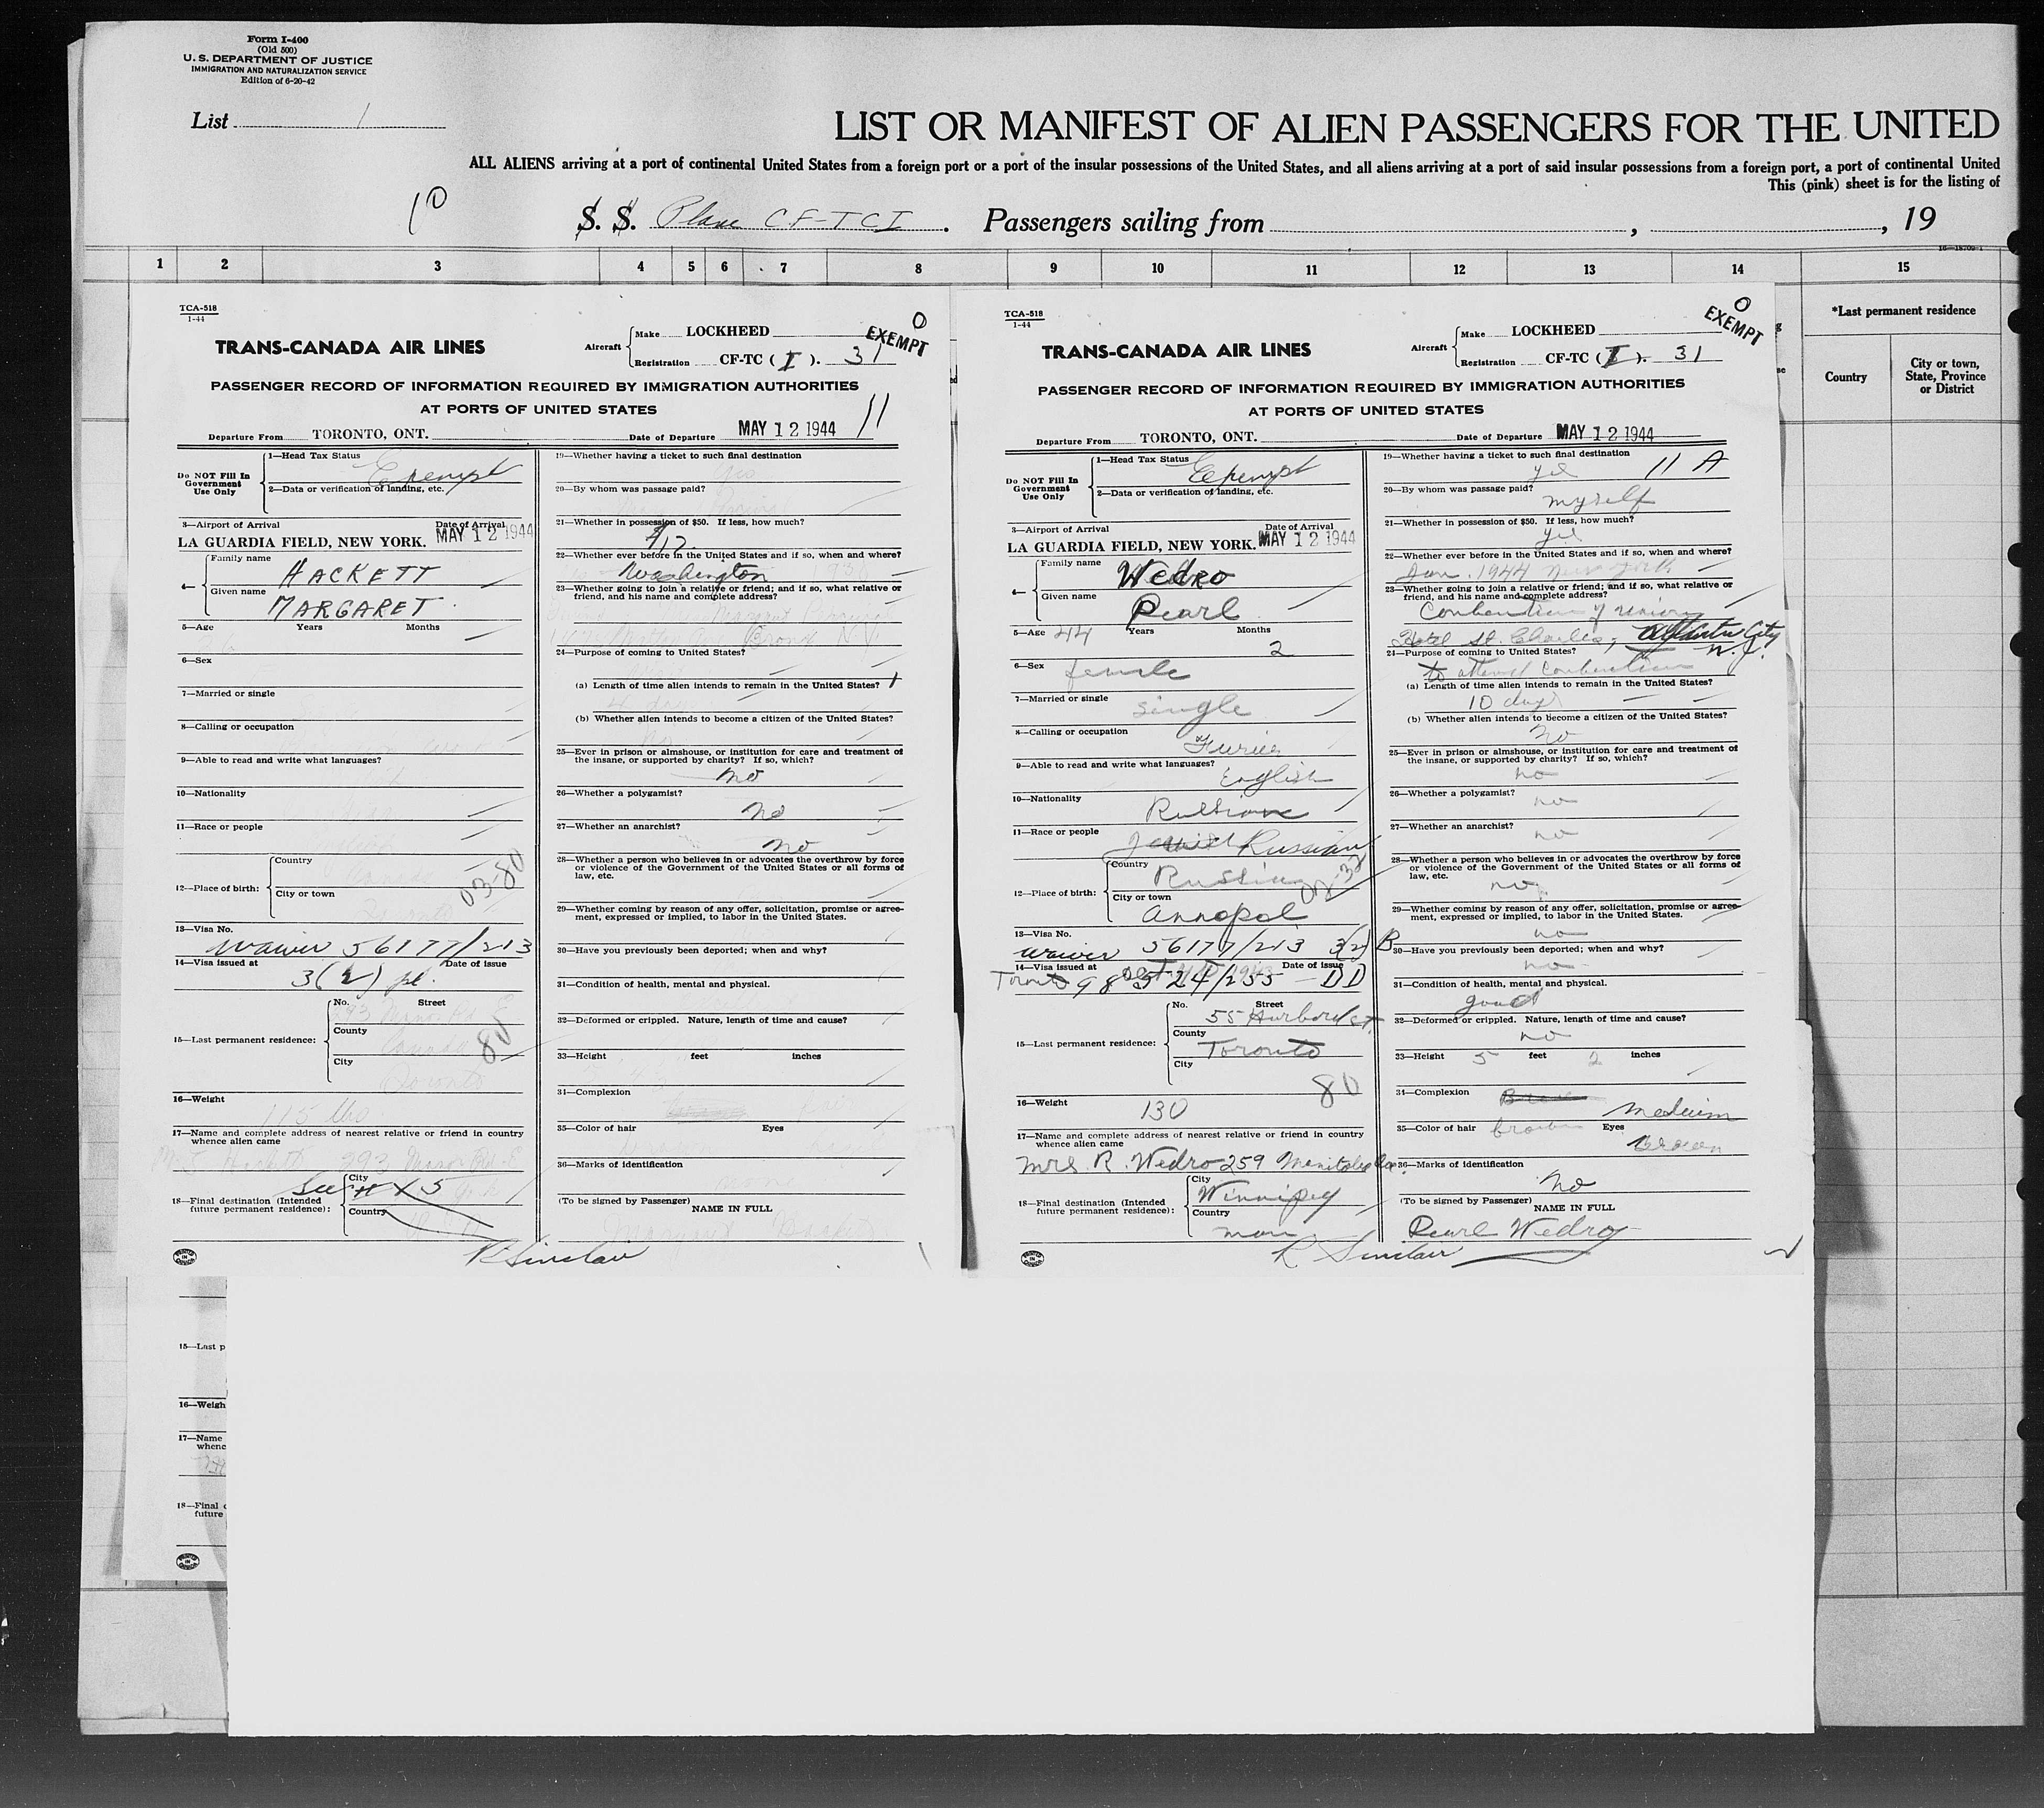 Form I-400
(Old 500)
U. S. DEPARTMENT OF JUSTICE
IMMIGRATION AND NATURALIZATION SERVICE
Edition of 6-20-42
List 1
LIST OR MANIFEST OF ALIEN PASSENGERS FOR THE UNITED
ALL ALIENS arriving at a port of continental United States from a foreign port or a port of the insular possessions of the United States, and all aliens arriving at a port of said insular possessions from a foreign port, a port of continental United
This (pink) sheet is for the listing of
10
S. S. Plane CF-TCI . Passengers sailing from , , 19
1 2 3 4 5 6 7 8 9 10 11 12 13 14 15
*Last permanent residence
Country
City or town,
State, Province
or District
TCA-518
1-44
0
EXEMPT
TRANS-CANADA AIR LINES
Aircraft
Make LOCKHEED
Registration CF-TC ( I ). 31
PASSENGER RECORD OF INFORMATION REQUIRED BY IMMIGRATION AUTHORITIES
AT PORTS OF UNITED STATES
11
Departure From TORONTO, ONT. Date of Departure MAY 12 1944
Do NOT Fill In
Government
Use Only
1—Head Tax Status
Exempt
2—Data or verification of landing, etc.
3—Airport of Arrival Date of Arrival
LA GUARDIA FIELD, NEW YORK. MAY 12 1944
4— Family name
HACKETT
Given name
MARGARET
5—Age Years Months
6—Sex
7—Married or single
8—Calling or occupation
9—Able to read and write what languages?
10—Nationality
11—Race or people
12—Place of birth:
Country
City or town
03-80
13—Visa No.
Waiver 56177/213
14—Visa issued at Date of issue
3(2)
15—Last permanent residence:
No. Street
293 Manor Rd E
County
Canada
City
Toronto
80
16—Weight
115 lbs
17—Name and complete address of nearest relative or friend in country
whence alien came
293 Manor Rd E
18—Final destination (Intended
future permanent residence):
City
See # 15
Country
R Sinclair
19—Whether having a ticket to such final destination
20—By whom was passage paid?
21—Whether in possession of $50. If less, how much?
22—Whether ever before in the United States and if so, when and where?
Washington
23—Whether going to join a relative or friend; and if so, what relative or
friend, and his name and complete address?
Bronx N.Y.
24—Purpose of coming to United States?
(a) Length of time alien intends to remain in the United States?
(b) Whether alien intends to become a citizen of the United States?
no
25—Ever in prison or almshouse, or institution for care and treatment of
the insane, or supported by charity? If so, which?
no
26—Whether a polygamist?
no
27—Whether an anarchist?
no
28—Whether a person who believes in or advocates the overthrow by force
or violence of the Government of the United States or all forms of
law, etc.
29—Whether coming by reason of any offer, solicitation, promise or agree-
ment, expressed or implied, to labor in the United States.
30—Have you previously been deported; when and why?
31—Condition of health, mental and physical.
32—Deformed or crippled. Nature, length of time and cause?
33—Height feet inches
34—Complexion
35—Color of hair Eyes
36—Marks of identification
(To be signed by Passenger) NAME IN FULL
PRINTED IN CANADA
TCA-518
1-44
0
EXEMPT
TRANS-CANADA AIR LINES
Aircraft
Make LOCKHEED
Registration CF-TC ( I ). 31
PASSENGER RECORD OF INFORMATION REQUIRED BY IMMIGRATION AUTHORITIES
AT PORTS OF UNITED STATES
Departure From TORONTO, ONT. Date of Departure MAY 12 1944
Do NOT Fill In
Government
Use Only
1—Head Tax Status
Exempt
2—Data or verification of landing, etc.
3—Airport of Arrival Date of Arrival
LA GUARDIA FIELD, NEW YORK. MAY 12 1944
4— Family name
WEDRO
Given name
Pearl
5—Age 44 Years Months 2
6—Sex
female
7—Married or single
single
8—Calling or occupation
Furier
9—Able to read and write what languages?
English
10—Nationality
Russian
11—Race or people
Jewish Russian
12—Place of birth:
Country
Russia
City or town
Annopol
02-32
13—Visa No.
Waiver 56177/213 3(2) B
14—Visa issued at Date of issue
Toronto 98524/255 — DD
15—Last permanent residence:
No. Street
55 Harbord St.
County
Toronto
City
80
16—Weight
130
17—Name and complete address of nearest relative or friend in country
whence alien came
Mrs. R. Wedro 259 Manitoba Ave.
18—Final destination (Intended
future permanent residence):
City
Winnipeg
Country
man
R Sinclair
19—Whether having a ticket to such final destination
yes 11 A
20—By whom was passage paid?
myself
21—Whether in possession of $50. If less, how much?
yes
22—Whether ever before in the United States and if so, when and where?
Jan. 1944 New York
23—Whether going to join a relative or friend; and if so, what relative or
friend, and his name and complete address?
Convention of Union
Hotel St. Charles, Atlantic City
N.J.
24—Purpose of coming to United States?
to attend Convention
(a) Length of time alien intends to remain in the United States?
10 days
(b) Whether alien intends to become a citizen of the United States?
no
25—Ever in prison or almshouse, or institution for care and treatment of
the insane, or supported by charity? If so, which?
no
26—Whether a polygamist?
no
27—Whether an anarchist?
no
28—Whether a person who believes in or advocates the overthrow by force
or violence of the Government of the United States or all forms of
law, etc.
no
29—Whether coming by reason of any offer, solicitation, promise or agree-
ment, expressed or implied, to labor in the United States.
no
30—Have you previously been deported; when and why?
no
31—Condition of health, mental and physical.
good
32—Deformed or crippled. Nature, length of time and cause?
no
33—Height 5 feet 2 inches
34—Complexion
Medium
35—Color of hair brown Eyes
Brown
36—Marks of identification
No
(To be signed by Passenger) NAME IN FULL
Pearl Wedro
PRINTED IN CANADA
15—Last p
16—Weigh
17—Name
whenc
18—Final d
future
PRINTED IN CANADA